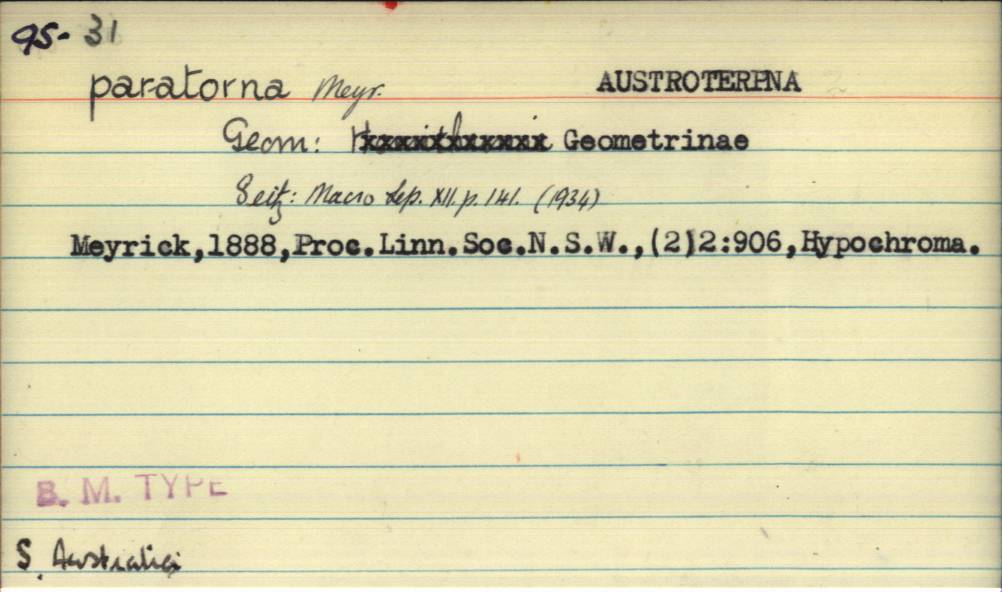 95- 31
paratorna Meyr. AUSTROTERPNA
Geom: Geometrinae
Seitz: Macro Lep. XII. p. 141. (1934)
Meyrick,1888,Proc.Linn.Soc.N.S.W.,(2)2:906,Hypochroma.
B. M. TYPE
S. Australia